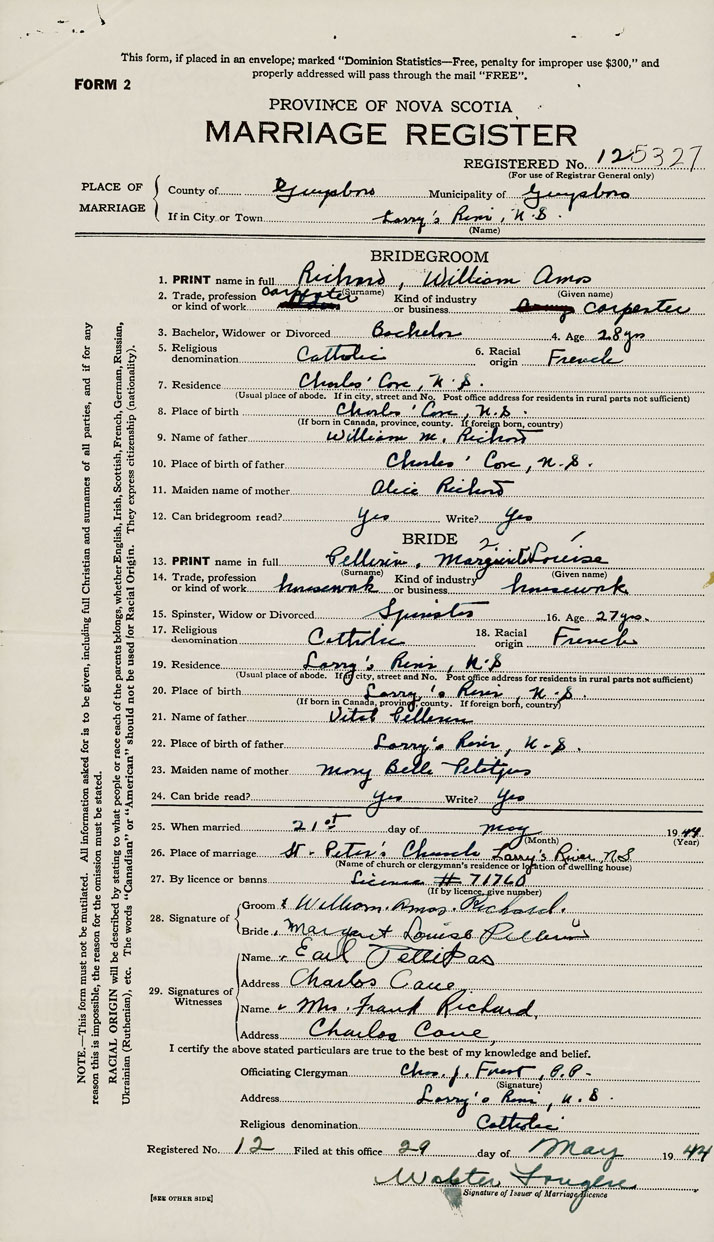 This form, if placed in an envelope; marked "Dominion Statistics—Free, penalty for improper use $300," and
properly addressed will pass through the mail "FREE".
FORM 2
PROVINCE OF NOVA SCOTIA
MARRIAGE REGISTER
REGISTERED No. 125327
(For use of Registrar General only)
PLACE OF MARRIAGE
County of Guysboro Municipality of Guysboro
If in City or Town Larry's River, N.S.
(Name)
BRIDEGROOM
1. PRINT name in full Richard, William Amos
(Surname) (Given name)
2. Trade, profession or kind of work carpenter Kind of industry or business carpenter
3. Bachelor, Widower or Divorced Bachelor 4. Age 28 yrs
5. Religious denomination Catholic 6. Racial origin French
7. Residence Charlos' Cove, N.S.
(Usual place of abode. If in city, street and No. Post office address for residents in rural parts not sufficient)
8. Place of birth Charlos' Cove, N.S.
(If born in Canada, province, county. If foreign born, country)
9. Name of father William M. Richard
10. Place of birth of father Charlos' Cove, N.S.
11. Maiden name of mother Alice Richard
12. Can bridegroom read? Yes Write? Yes
BRIDE
13. PRINT name in full Pellerin, Louise
(Surname) (Given name)
14. Trade, profession or kind of work housework Kind of industry or business housework
15. Spinster, Widow or Divorced Spinster 16. Age 27 yrs.
17. Religious denomination Catholic 18. Racial origin French
19. Residence Larry's River, N.S
(Usual place of abode. If in city, street and No. Post office address for residents in rural parts not sufficient)
20. Place of birth Larry's River, N.S.
(If born in Canada, province, county. If foreign born, country)
21. Name of father Vital Pellerin
22. Place of birth of father Larry's River, N.S.
23. Maiden name of mother Mary Belle
24. Can bride read? Yes Write? Yes
25. When married 21st day of May 1944
(Month) (Year)
26. Place of marriage St. Peter's Church Larry's River N.S
(Name of church or clergyman's residence or location of dwelling house)
27. By licence or banns License # 71760
(If by licence, give number)
28. Signature of
Groom William Amos Richard.
Bride Margaret Louise Pellerin
29. Signatures of Witnesses
Name Earl Pettipas
Address Charlos Cove
Name Mrs. Frank Richard,
Address Charlos Cove,
I certify the above stated particulars are true to the best of my knowledge and belief.
Officiating Clergyman Chas. J. Forest, P.P.
(Signature)
Address Larry's River, N.S.
Religious denomination Catholic
Registered No. 12 Filed at this office 29 day of May 1944
Walter Fougere
Signature of Issuer of Marriage Licence
[SEE OTHER SIDE]
NOTE.—This form must not be mutilated. All information asked for is to be given, including full Christian and surnames of all parties, and if for any
reason this is impossible, the reason for the omission must be stated.
RACIAL ORIGIN will be described by stating to what people or race each of the parents belongs, whether English, Irish, Scottish, French, German, Russian,
Ukrainian (Ruthenian), etc. The words "Canadian" or "American" should not be used for Racial Origin. They express citizenship (nationality).